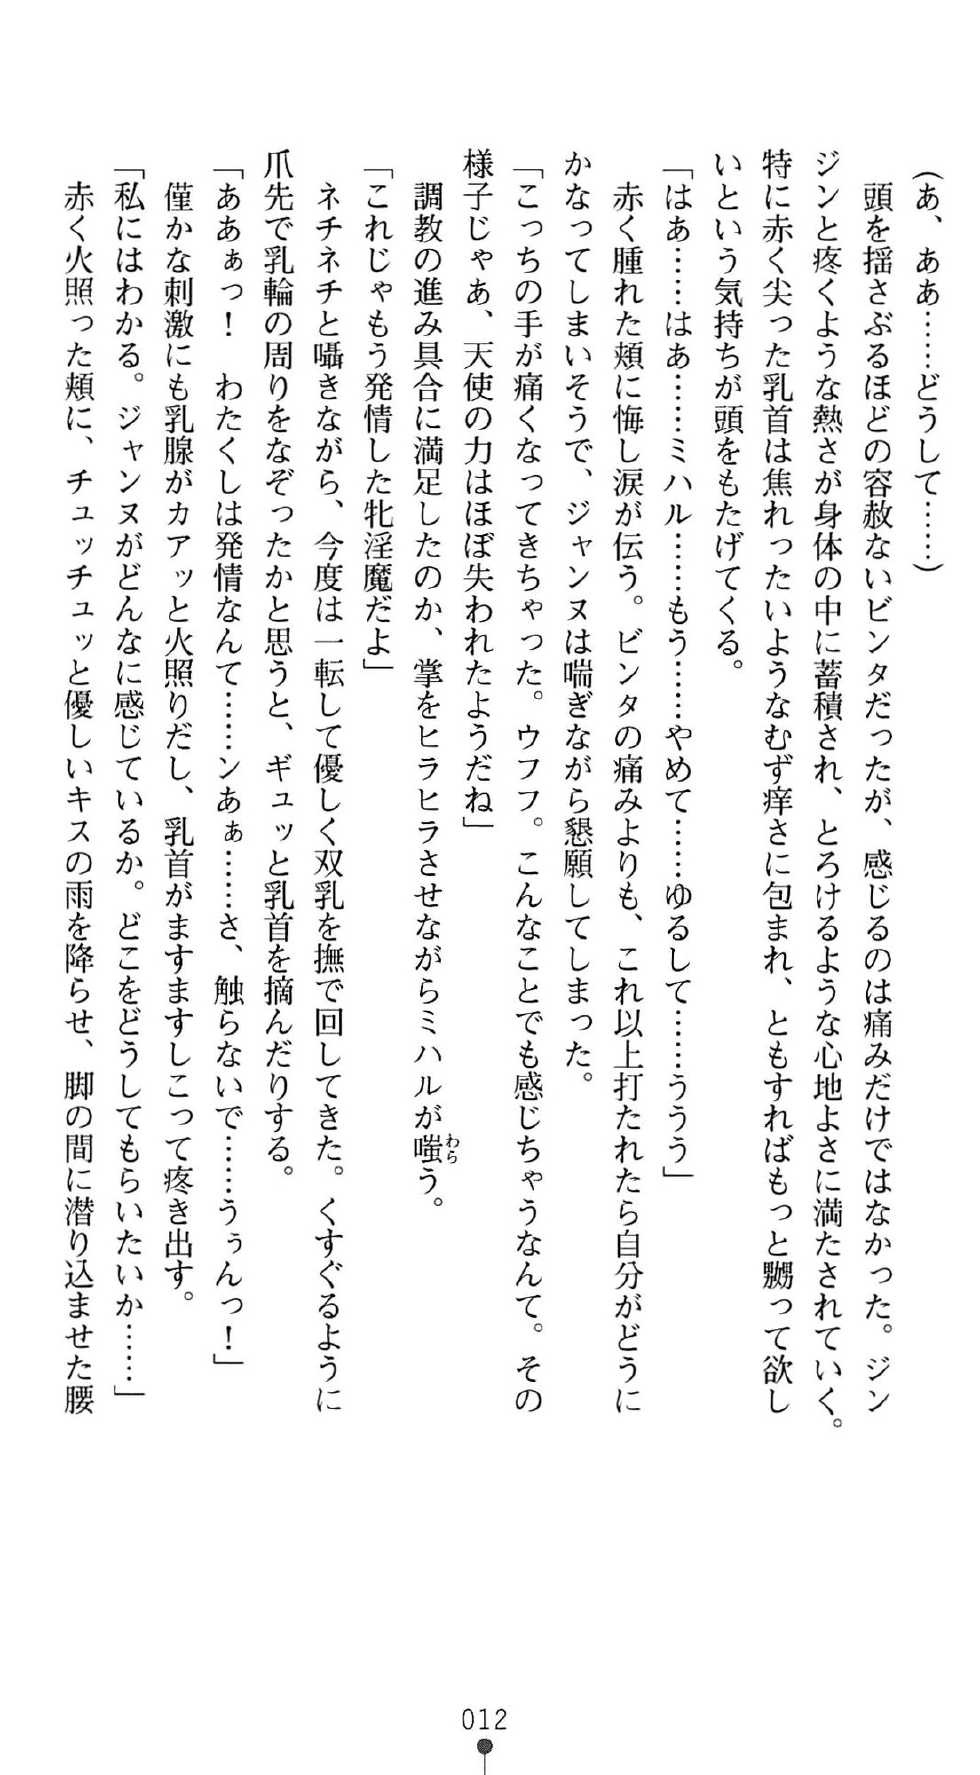 (あ、ああ……どうして……)
　頭を揺さぶるほどの容赦ないビンタだったが、感じるのは痛みだけではなかった。ジン
ジンと疼くような熱さが身体の中に蓄積され、とろけるような心地よさに満たされていく。
特に赤く尖った乳首は焦れったいようなむず痒さに包まれ、ともすればもっと嬲って欲し
いという気持ちが頭をもたげてくる。
「はあ……はあ……ミハル……もう……やめて……ゆるして……ううう」
　赤く腫れた頬に悔し涙が伝う。ビンタの痛みよりも、これ以上打たれたら自分がどうに
かなってしまいそうで、ジャンヌは喘ぎながら懇願してしまった。
「こっちの手が痛くなってきちゃった。ウフフ。こんなことでも感じちゃうなんて。その
様子じゃあ、天使の力はほぼ失われたようだね」
　調教の進み具合に満足したのか、掌をヒラヒラさせながらミハルが嗤わらう。
「これじゃもう発情した牝淫魔だよ」
　ネチネチと囁きながら、今度は一転して優しく双乳を撫で回してきた。くすぐるように
爪先で乳輪の周りをなぞったかと思うと、ギュッと乳首を摘んだりする。
「ああぁっ！　わたくしは発情なんて……ンあぁ……さ、触らないで……うぅんっ！」
　僅かな刺激にも乳腺がカアッと火照りだし、乳首がますますしこって疼き出す。
「私にはわかる。ジャンヌがどんなに感じているか。どこをどうしてもらいたいか……」
　赤く火照った頬に、チュッチュッと優しいキスの雨を降らせ、脚の間に潜り込ませた腰
012